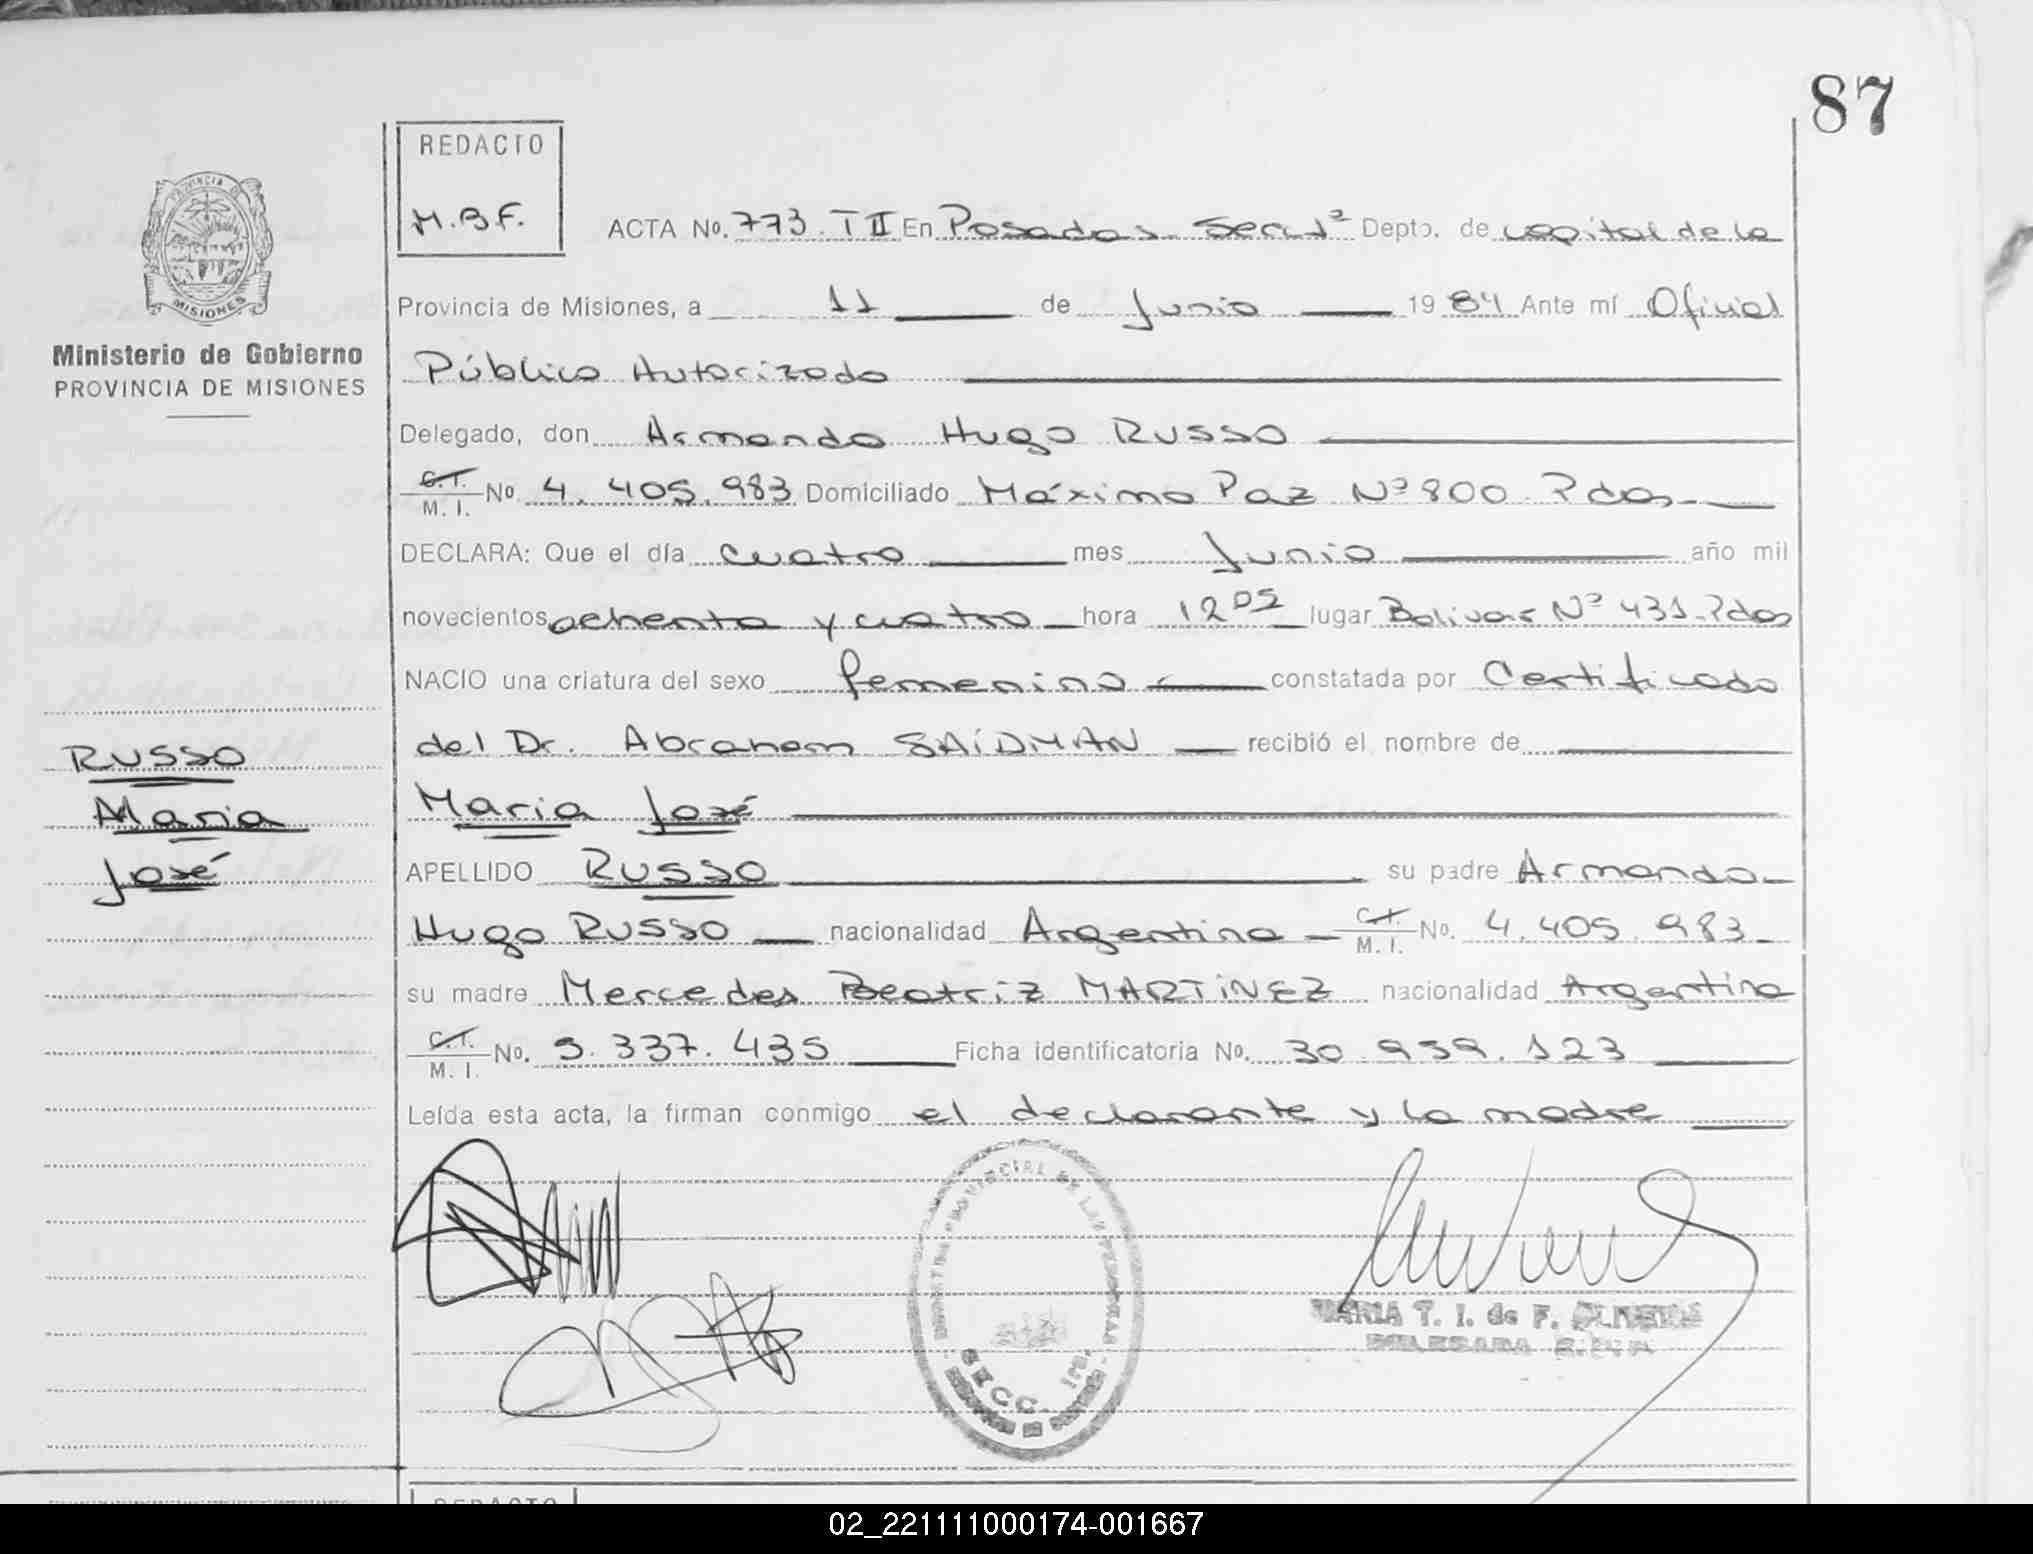 87
REDACTO
M.B.F.
ACTA No. 773. T II En Posadas Secc 1ª Depto. de capital de la
PROVINCIA DE
MISIONES
Ministerio de Gobierno
PROVINCIA DE MISIONES
Provincia de Misiones, a 11 de Junio 19 84 Ante mí Oficial
Público Autorizado
Delegado, don Armando Hugo RUSSO
C.I. M. I. No. 4.405.983 Domiciliado Máximo Paz Nº 800 Pdas.
DECLARA: Que el día cuatro mes Junio año mil
novecientos ochenta y cuatro hora 12 05 lugar Bolivar Nº 431. Pdas
NACIO una criatura del sexo femenino constatada por Certificado
del Dr. Abraham SAIDMAN recibió el nombre de
María José
RUSSO
María
José
APELLIDO RUSSO su padre Armando
Hugo RUSSO nacionalidad Argentina C.I. M. I. No. 4.405.983
su madre Mercedes Beatriz MARTINEZ nacionalidad Argentina
C.I. M. I. No. 5.337.435 Ficha identificatoria No. 30.959.123
Leída esta acta, la firman conmigo el declarante y la madre
PROVINCIAL DE LAS PERSONAS
SECC. 1ra.
MARIA T. I. de F. OLIVEIRA
DELEGADA
REDACTO
02_221111000174-001667